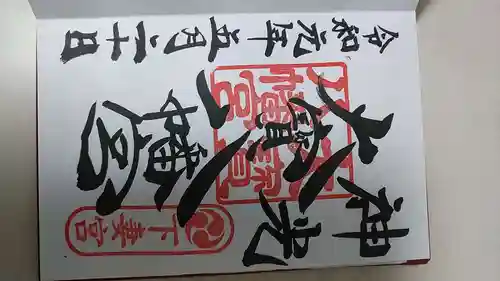 神光
大寶
八幡宮
令和元年五月二十日
下妻宮